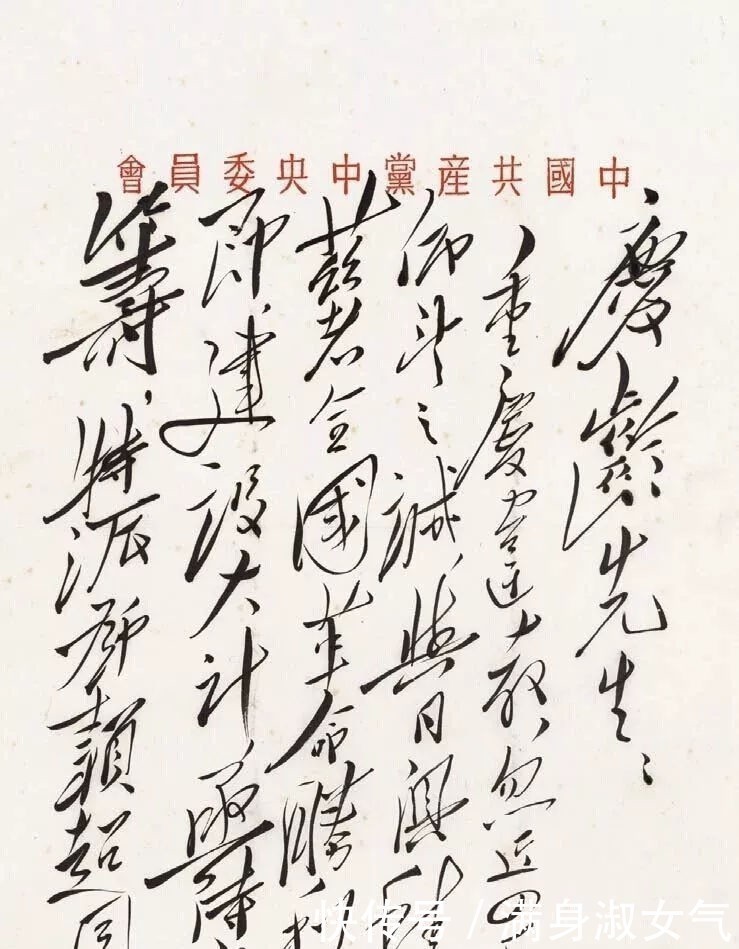 中國共產黨中央委員會
慶齡先生：
重慶違教，忽近四
仰之誠，與日俱積
茲者全國革命勝利
即，建設大計，亟待
籌，特派鄧穎超同
快传号/满身淑女气